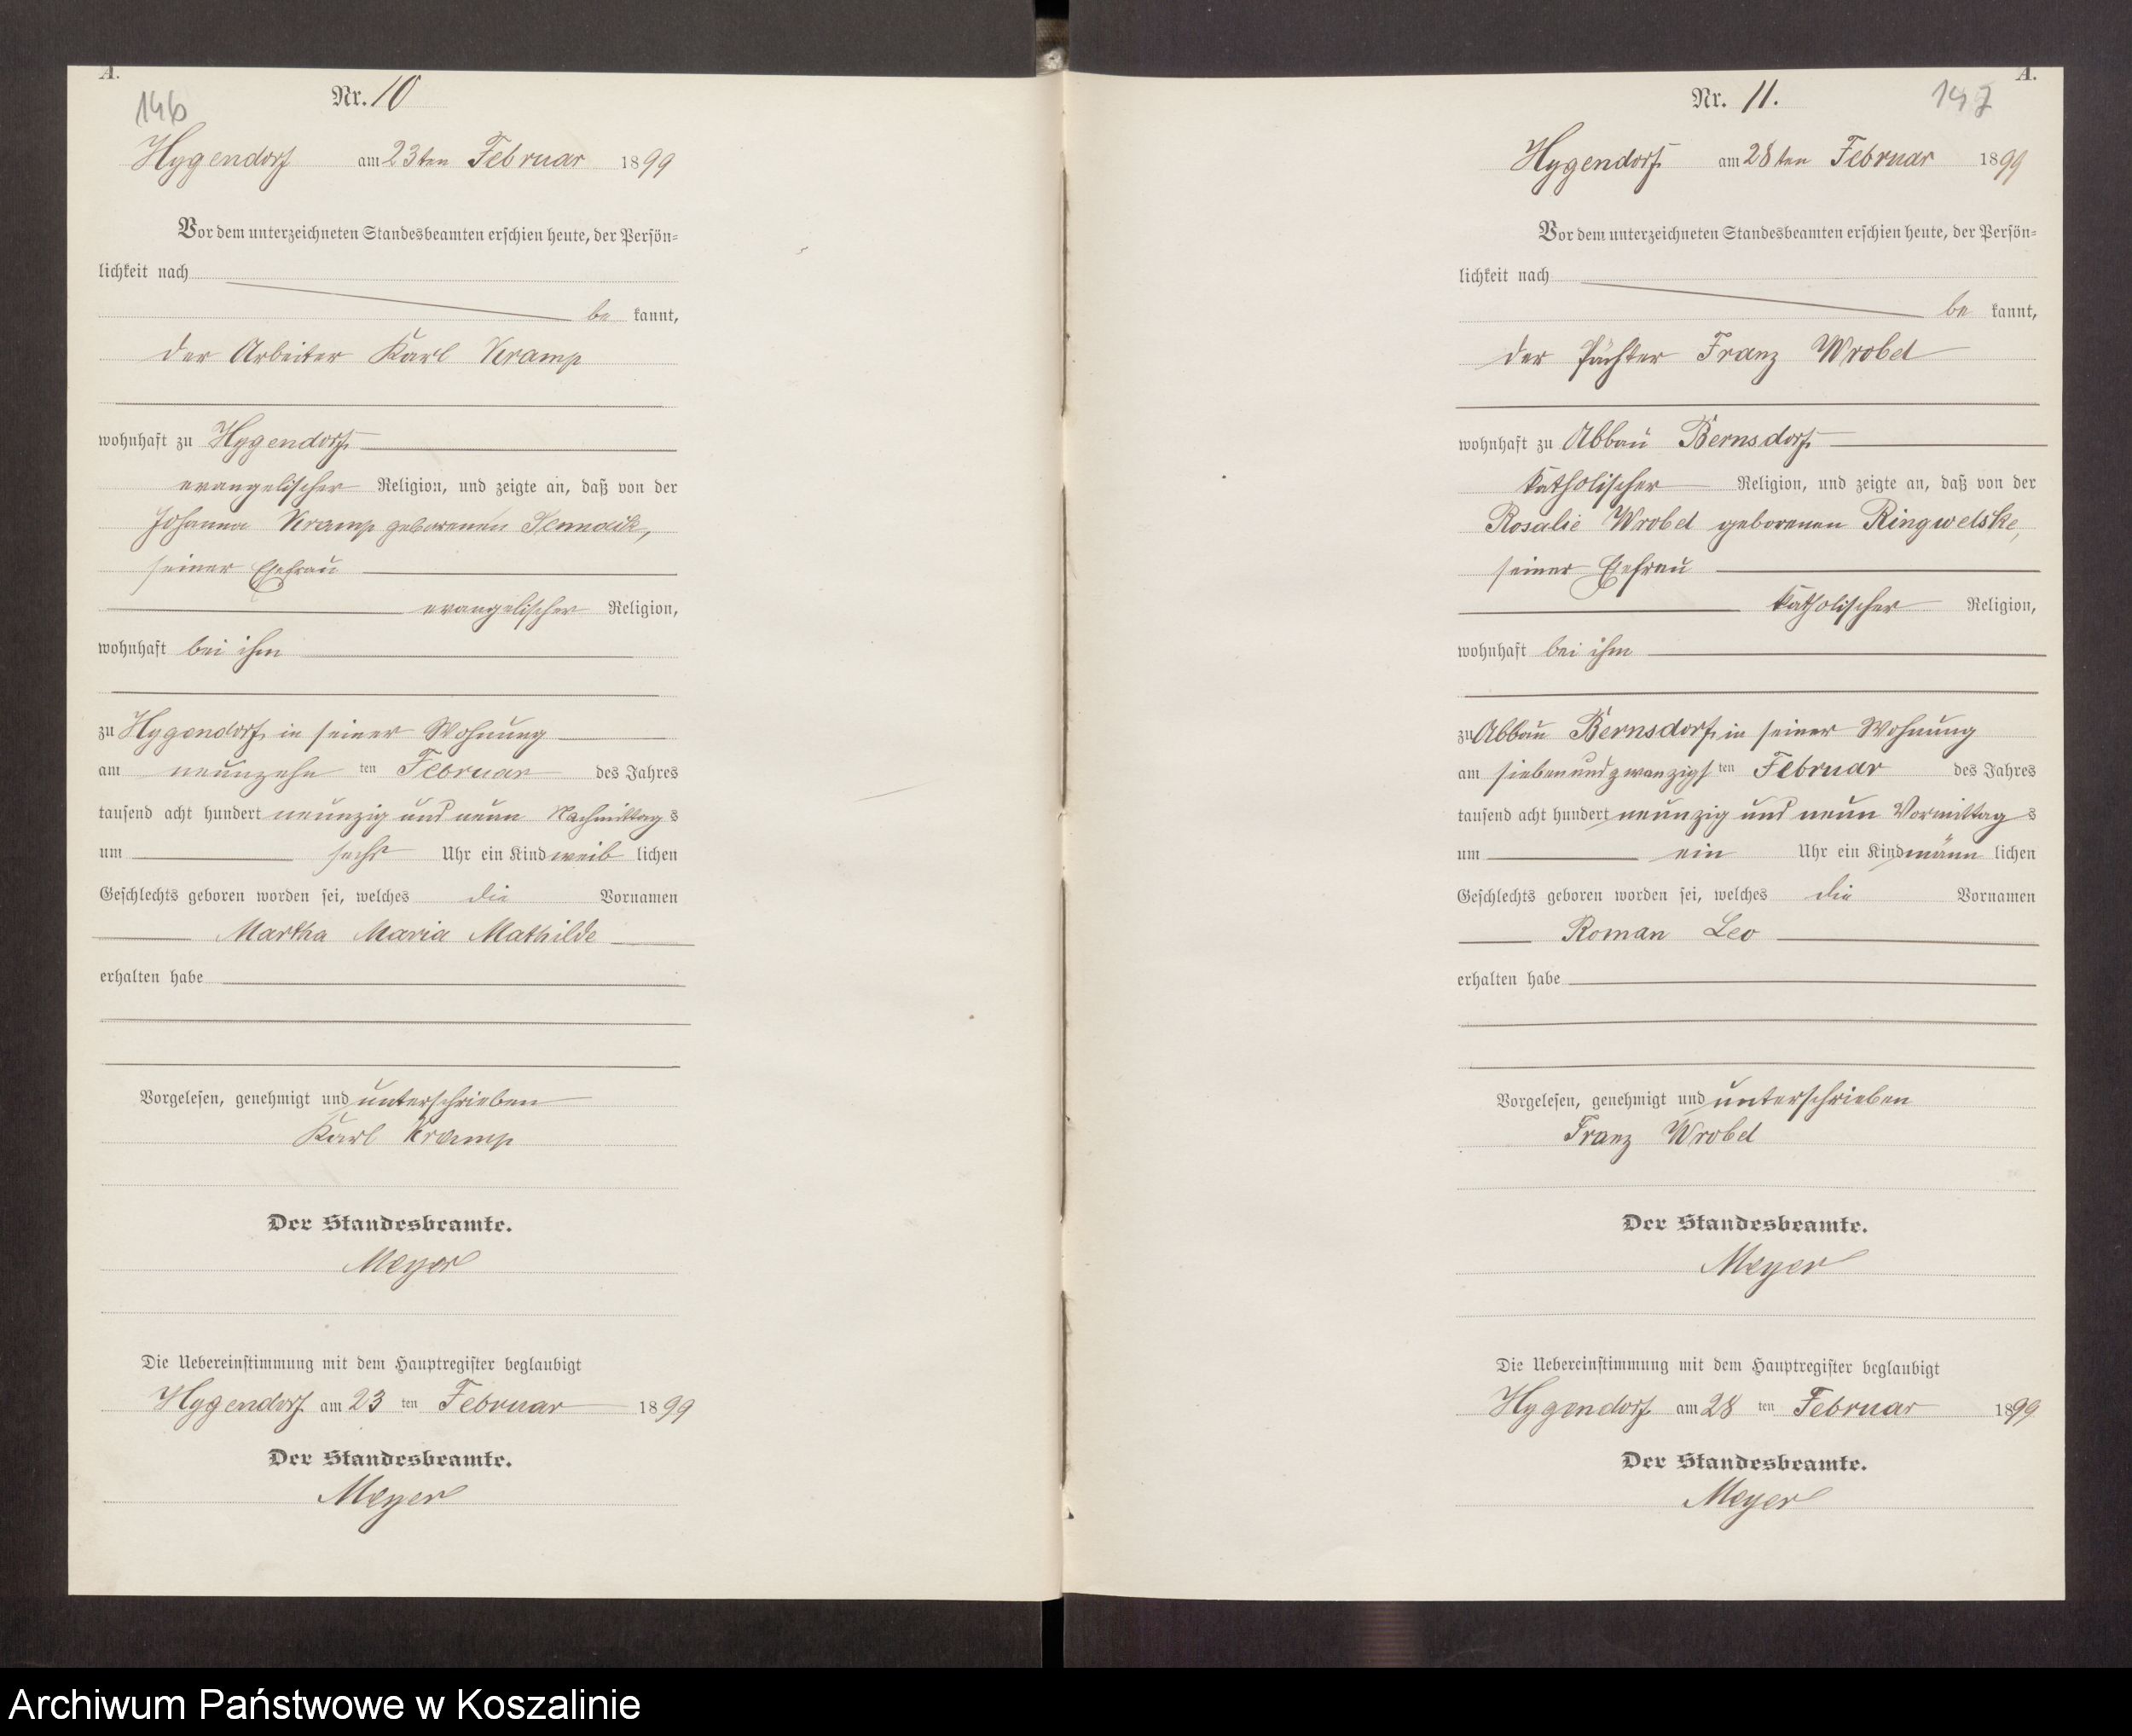 A.
146
Nr. 10
Hygendorf am 23ten Februar 1899
Vor dem unterzeichneten Standesbeamten erschien heute, der Persön-
lichkeit nach
be kannt,
der Arbeiter Karl Kramp
wohnhaft zu Hygendorf
evangelischer Religion, und zeigte an, daß von der
Johanna Kramp geborenen
seiner Ehefrau
evangelischer Religion,
wohnhaft bei ihm
zu Hygendorf, in seiner Wohnung
am neunzehn ten Februar des Jahres
tausend acht hundert neunzig und neun Nachmittag s
um sechs Uhr ein Kind weib lichen
Geschlechts geboren worden sei, welches die Vornamen
Martha Maria Mathilde
erhalten habe
Vorgelesen, genehmigt und unterschrieben
Karl Kramp
Der Standesbeamte.
Meyer
Die Uebereinstimmung mit dem Hauptregister beglaubigt
Hygendorf am 23 ten Februar 1899
Der Standesbeamte.
Meyer
A.
147
Nr. 11.
Hygendorf am 28ten Februar 1899
Vor dem unterzeichneten Standesbeamten erschien heute, der Persön-
lichkeit nach
be kannt,
der Pächter Franz Wrobel
wohnhaft zu Abbau Bernsdorf
katholischer Religion, und zeigte an, daß von der
Rosalie Wrobel geborenen Ringwelske,
seiner Ehefrau
katholischer Religion,
wohnhaft bei ihm
zu Abbau Bernsdorf, in seiner Wohnung
am siebenundzwanzigs ten Februar des Jahres
tausend acht hundert neunzig und neun Vormittag s
um ein Uhr ein Kind männ lichen
Geschlechts geboren worden sei, welches die Vornamen
Roman Leo
erhalten habe
Vorgelesen, genehmigt und unterschrieben
Franz Wrobel
Der Standesbeamte.
Meyer
Die Uebereinstimmung mit dem Hauptregister beglaubigt
Hygendorf am 28 ten Februar 1899
Der Standesbeamte.
Meyer
Archiwum Państwowe w Koszalinie